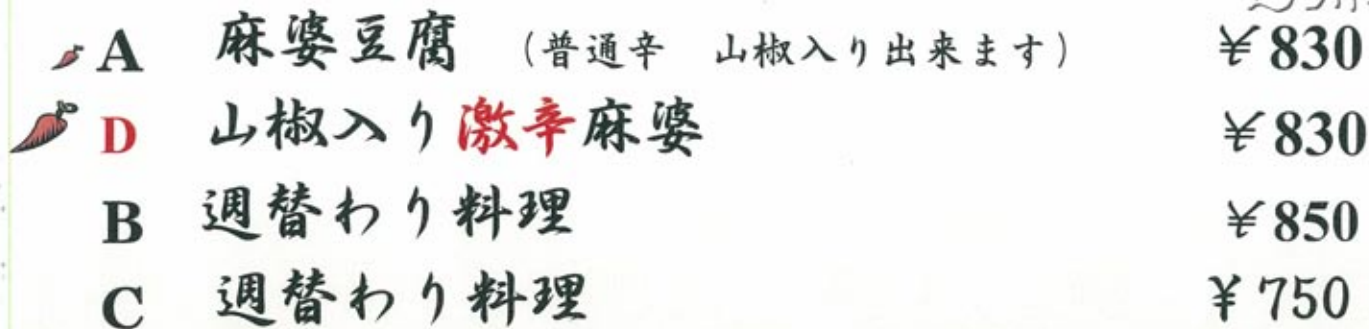 A 麻婆豆腐 (普通辛 山椒入り出来ます) ¥830
D 山椒入り激辛麻婆 ¥830
B 週替わり料理 ¥850
C 週替わり料理 ¥750